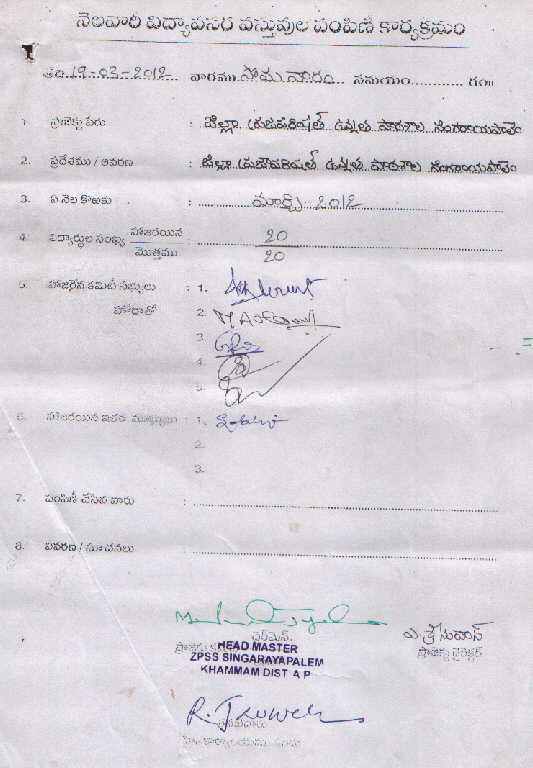 నెలవారీ విద్యావసర వస్తువుల పంపిణీ కార్యక్రమం
తేది 19-03-2012 వారము సోమవారం... సమయం............ గం॥
1. ప్రాజెక్టు పేరు : జిల్లా ప్రజాపరిషత్ ఉన్నత పాఠశాల సింగరాయపాలెం
2. ప్రదేశము / ఆవరణ : జిల్లా ప్రజాపరిషత్ ఉన్నత పాఠశాల సింగరాయపాలెం
3. ఏ నెల కొరకు : మార్చి 2012
4. విద్యార్థుల సంఖ్య హాజరయిన : 20
మొత్తము 20
5. హాజరైన కమిటీ సభ్యులు : 1.
హోదాతో 2.
3.
4.
5.
6. హాజరయిన ఇతర ముఖ్యులు : 1.
2.
3.
7. పంపిణీ చేసిన వారు :
8. వివరణ / సూచనలు :
చైర్మెన్.
ప్రాజెక్టు డైరెక్టర్
HEAD MASTER
ZPSS SINGARAYAPALEM
KHAMMAM DIST A P